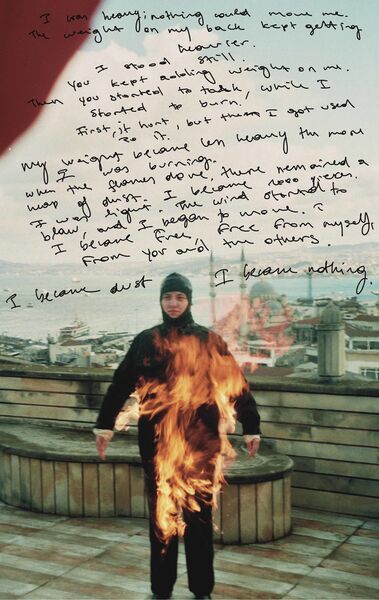 I was heavy; nothing could move me.
The weight on my back kept getting
heavier.
I stood still.
You kept adding weight on me.
Then you started to talk, while I
started to burn.
First, it hurt, but then I got used
to it.
My weight became less heavy the more
I was burning.
When the flames done, there remained a
heap of dust. I became 1000 pieces.
I was light. The wind started to
blow, and I began to move. I
I became free, free from myself,
from you and the others.
I became dust
I became nothing.